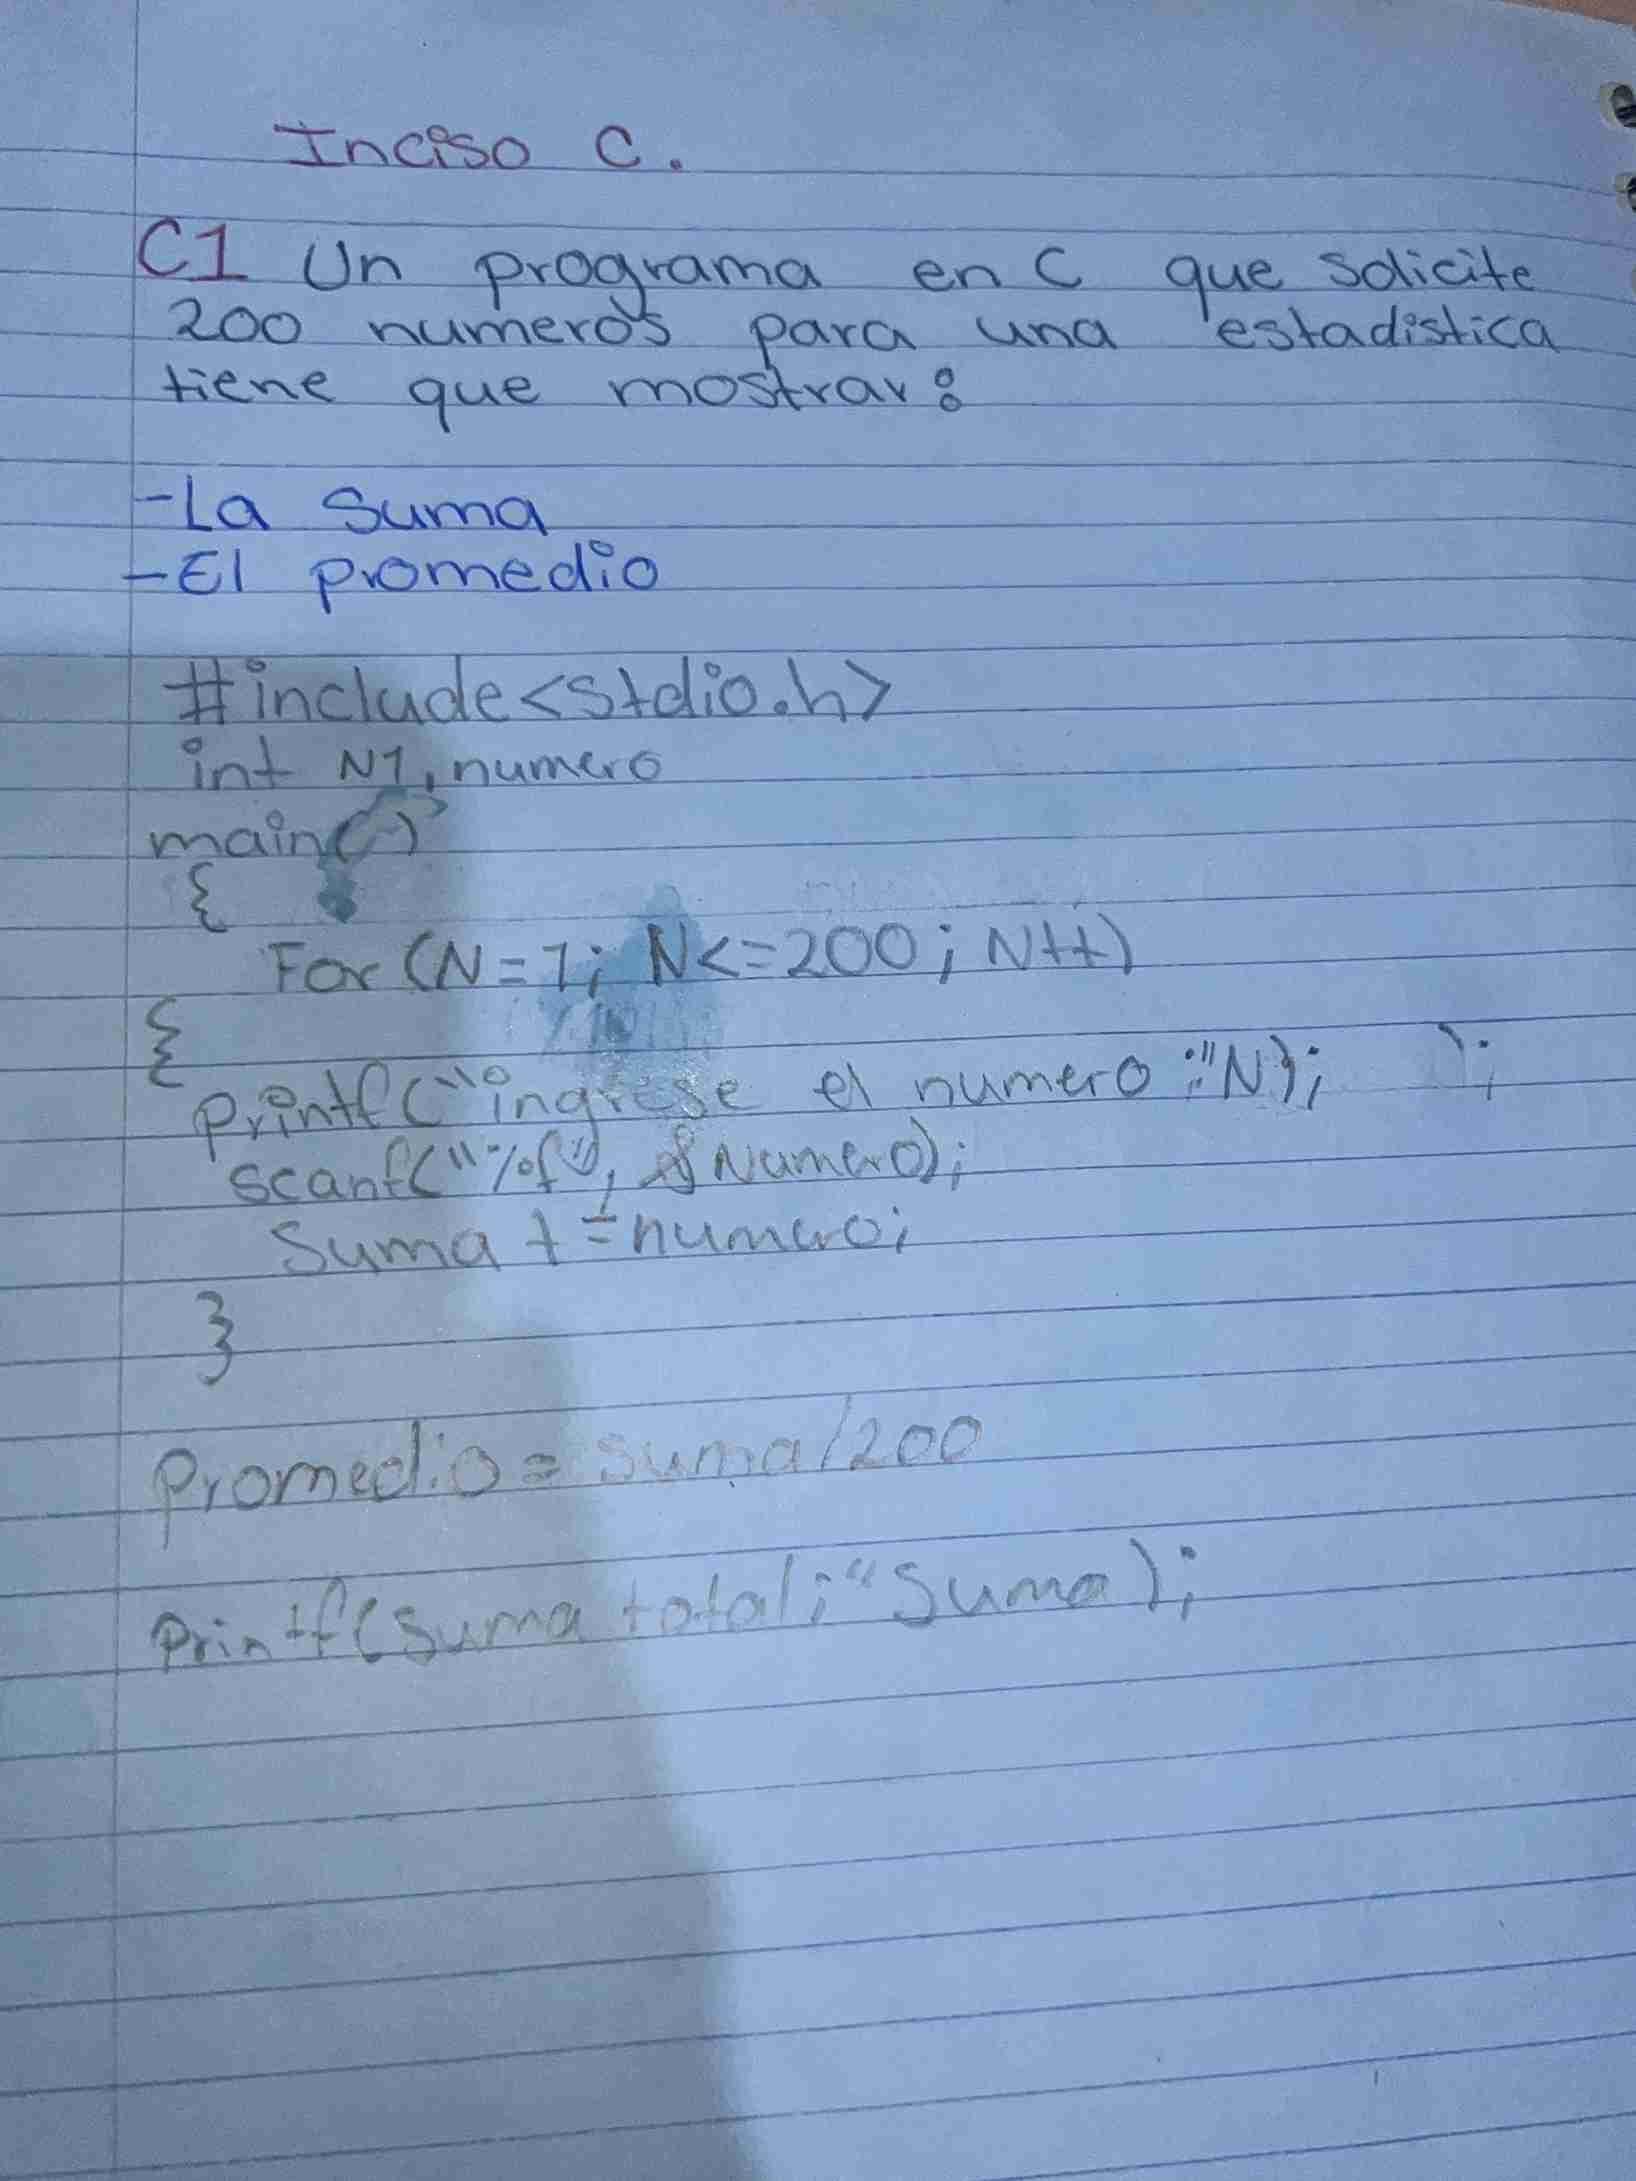 Inciso C.
C1 Un programa en C que solicite
200 numeros para una estadistica
tiene que mostrar:
-La suma
-El promedio
#include<stdio.h>
int N1, numero
main()
{
For (N=1; N<=200; N++)
{
printf("ingrese el numero :"N); );
scanf("%f", &Numero);
Suma +=numero;
}
Promedio = suma/200
Printf(suma total;"Suma);